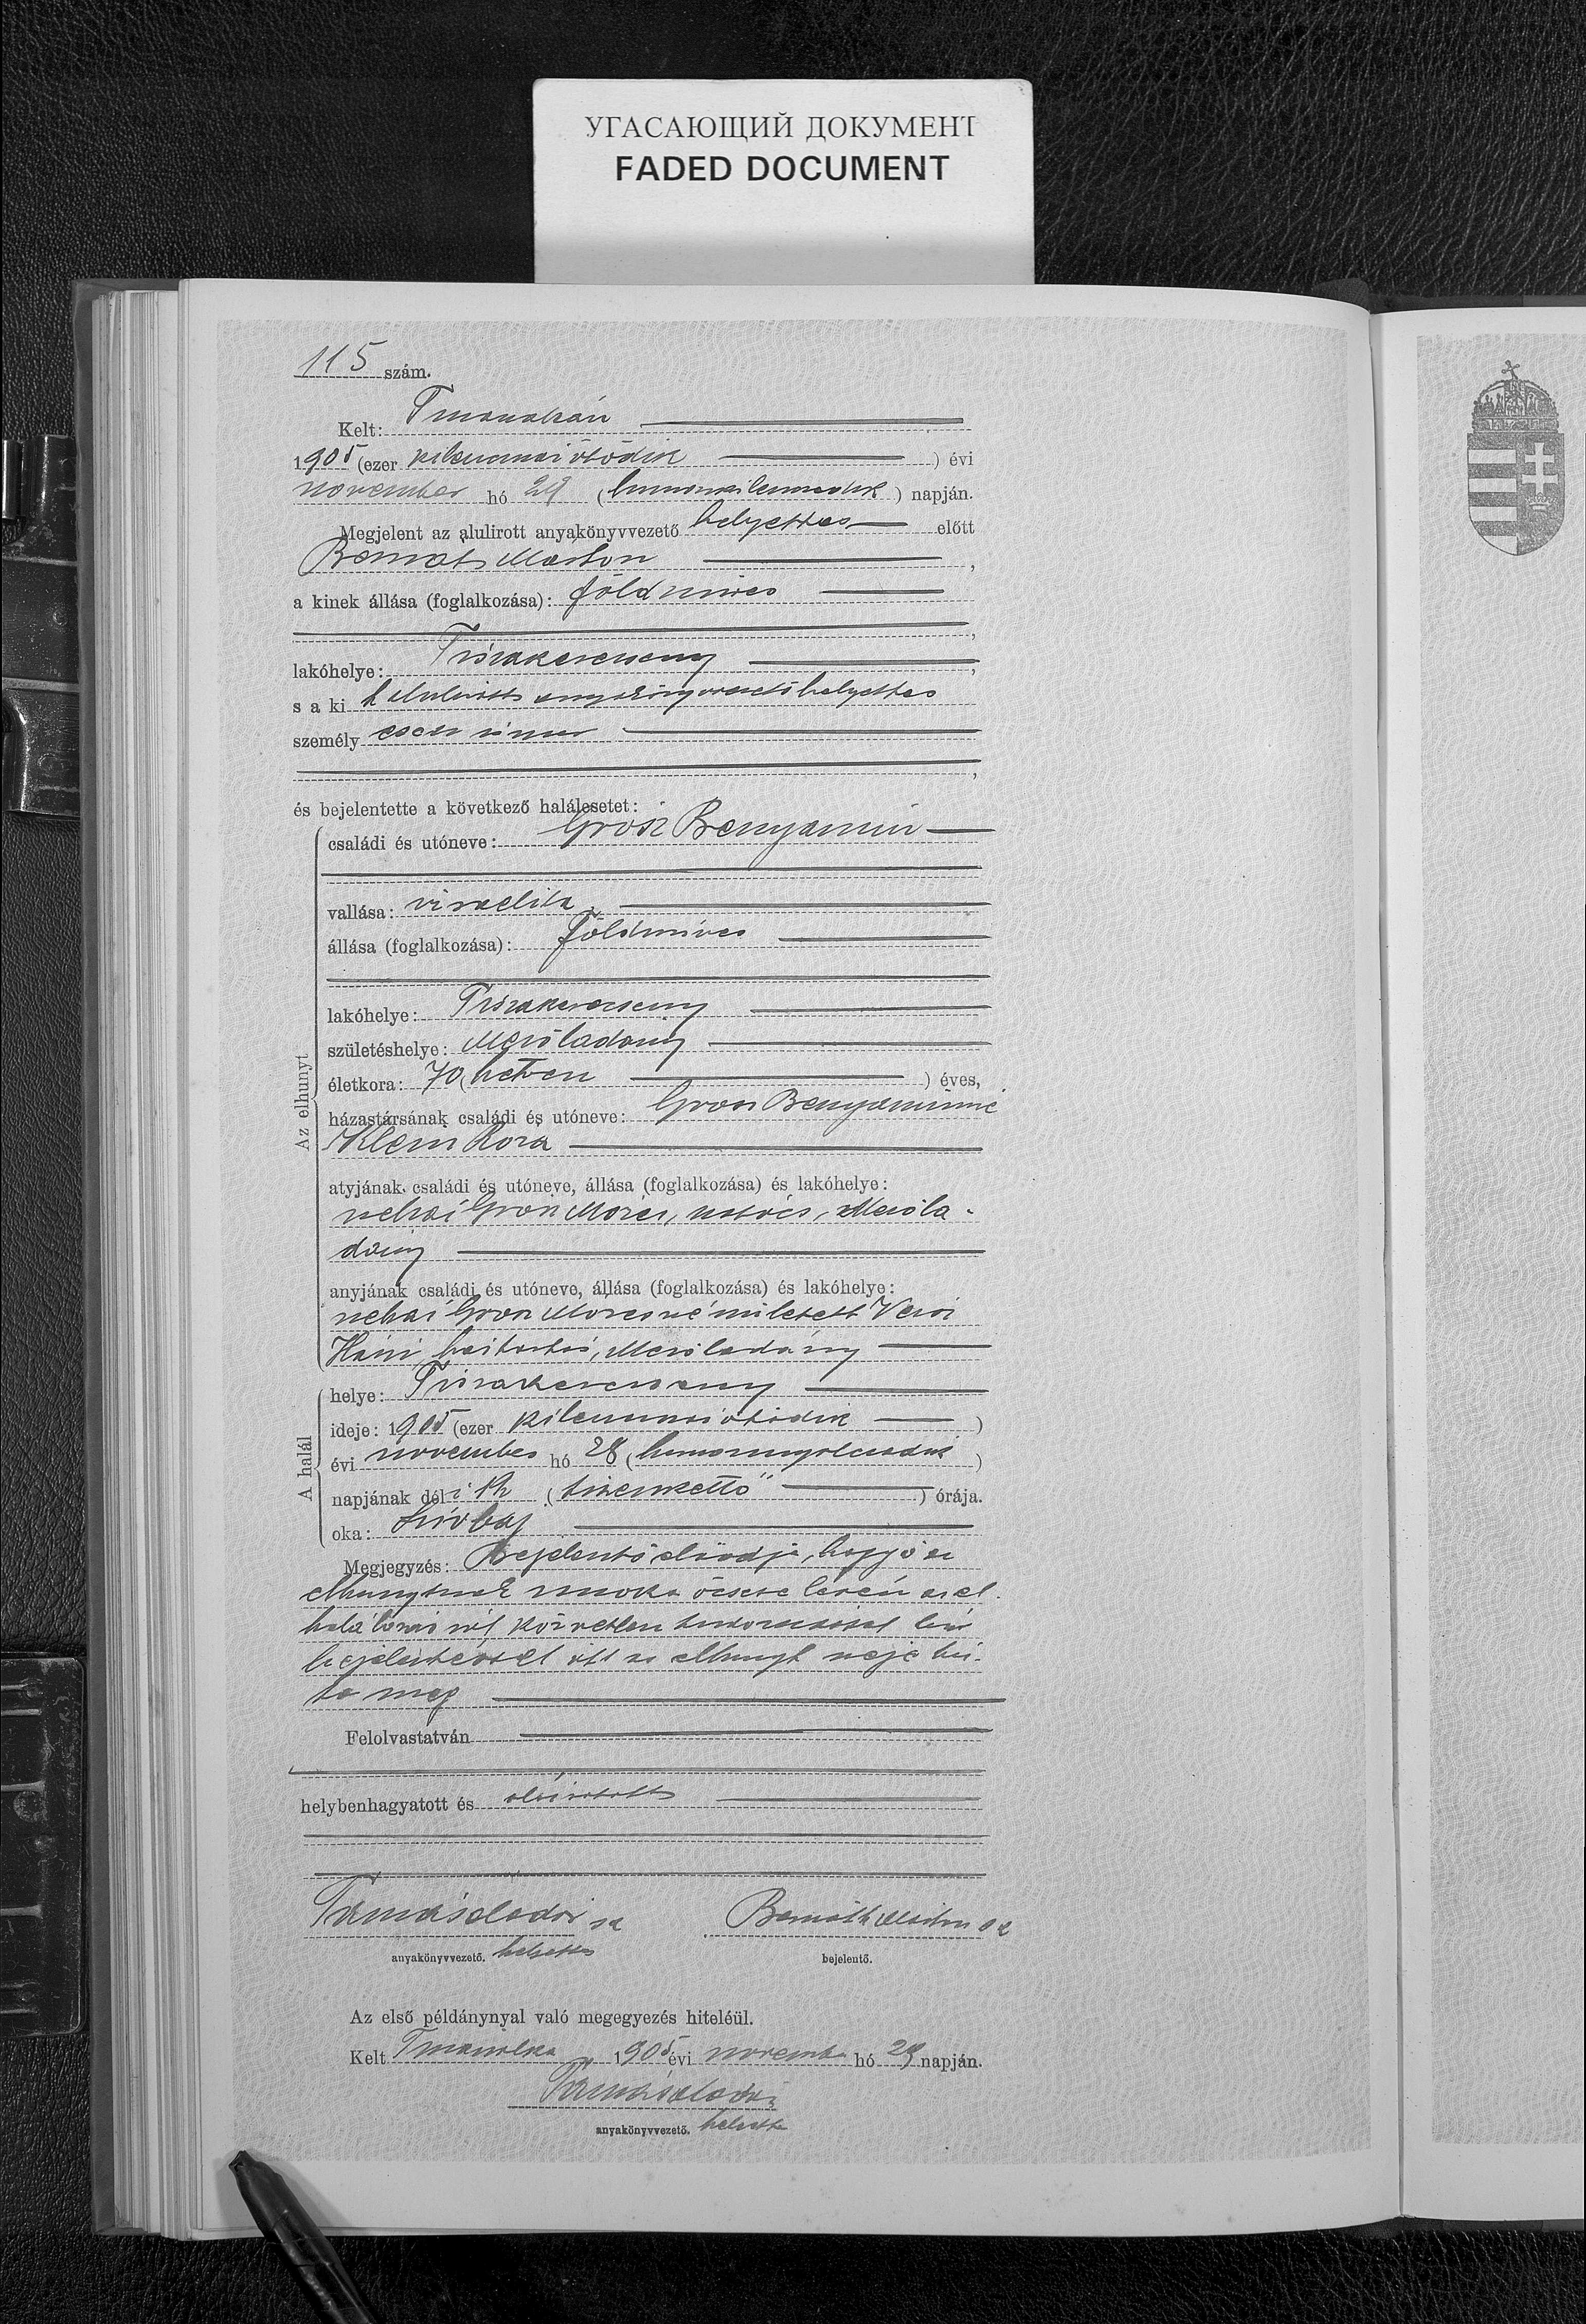 УГАСАЮЩИЙ ДОКУМЕНТ
FADED DOCUMENT
115 szám.
Kelt:
1905 (ezer kilencszázötödik ) évi
november hó 29 (huszonkilencedik ) napján.
Megjelent az alulirott anyakönyvvezető helyettes előtt
Márton ,
a kinek állása (foglalkozása): földmives
,
lakóhelye: Tiszakerecseny ,
s a ki alulirott anyakönyvvezető helyettes
személyesen ismer
,
és bejelentette a következő halálesetet:
Az elhunyt
családi és utóneve: Grosz Benyamin
vallása: izraelita
állása (foglalkozása): földmives
lakóhelye: Tiszakerecseny
születéshelye: Mezőladány
életkora: 70 (hetven ) éves,
házastársának családi és utóneve: Grosz Benyaminné
Klein Róza
atyjának családi és utóneve, állása (foglalkozása) és lakóhelye:
néhai Grosz Mózes, Mezőla-
dány
anyjának családi és utóneve, állása (foglalkozása) és lakóhelye:
néhai Grosz Mózesné született
Háni háztartás, Mezőladány
A halál
helye: Tiszakerecseny
ideje: 1905 (ezer kilencszázötödik )
évi november hó 28 (huszonnyolcadik )
napjának déli 12 (tizenkettő ) órája.
oka: Szívbaj
Megjegyzés: Bejelentő előadja, hogy ő az
elhunytnak öcscse lévén az el-
halálozásról közvetlen tudomással bír
bejelentéssel őtt az elhunyt neje bíz-
ta meg
Felolvastatván
helybenhagyatott és aláiratott
anyakönyvvezető. helyettes
Márton sk
bejelentő.
Az első példánynyal való megegyezés hiteléül.
Kelt 1905 évi november hó 29 napján.
anyakönyvvezető. helyettes